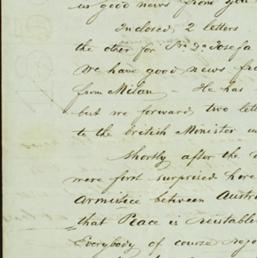 us good news from you
Inclosed 2 letters
the other for Sr. Dn. Josefa
We have good news fro
from Milan – He has
but we forward two lett
to the British Minister
Shortly after the
were first surprised here
Armistice between Austri
that Peace is reestabl
Everybody of course rejo